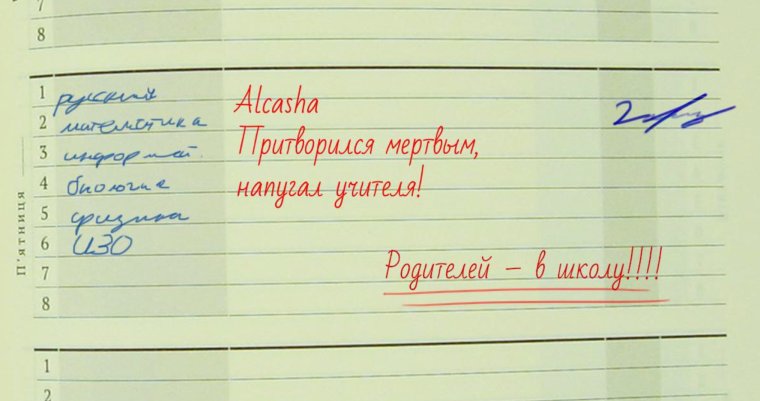 7
8
1 русский
2 математика
3 информат.
4 биология
5 физика
6 ИЗО
7
8
П'ятниця
Alcasha
Притворился мертвым,
напугал учителя!
Родителей – в школу!!!!
1
2